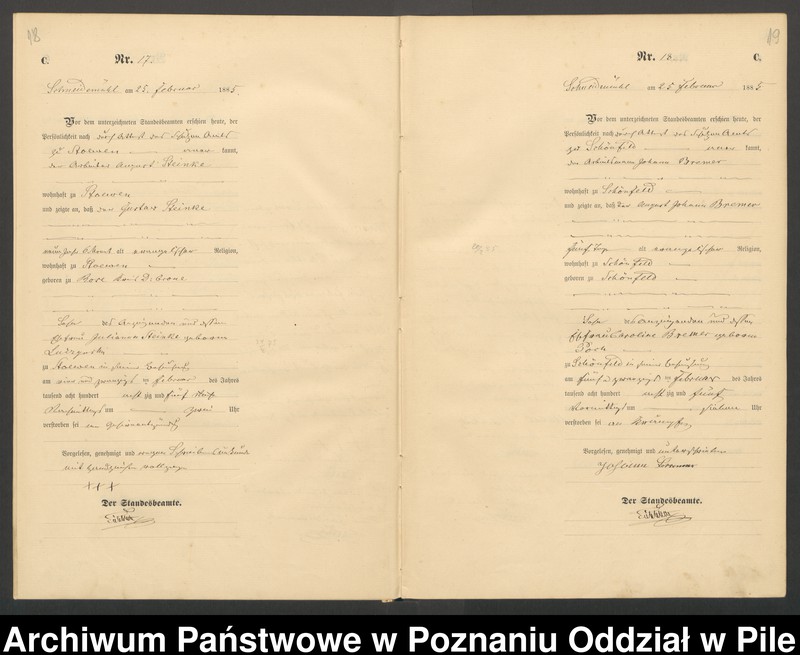 18
C.
Nr. 17.
Schneidemühl am 25. Februar 1885.
Vor dem unterzeichneten Standesbeamten erschien heute, der
Persönlichkeit nach durch Attest des Schulzen Amts
zu Stoewen kannt,
der Arbeiter August Steinke
wohnhaft zu Stoewen
und zeigte an, daß der Gustav Steinke
alt evangelischer Religion,
wohnhaft zu Stoewen
geboren zu Rose Kreis
Sohn des Anzeigenden und dessen
Ehefrau Juliana Steinke geborenen
zu Stoewen in seiner Behausung
am vier und zwanzigsten Februar des Jahres
tausend acht hundert achtzig und fünf
Nachmittags um zwei Uhr
verstorben sei an
Vorgelesen, genehmigt und wegen Schreibensunkunde
mit Handzeichen vollzogen
+++
Der Standesbeamte.
19
Nr. 18.
C.
Schneidemühl am 25. Februar 1885
Vor dem unterzeichneten Standesbeamten erschien heute, der
Persönlichkeit nach durch Attest des Schulzen Amts
zu Schönfeld kannt,
der Arbeitsmann Johann Bremer
wohnhaft zu Schönfeld
und zeigte an, daß der August Johann Bremer
fünf Tage alt evangelischer Religion,
wohnhaft zu Schönfeld
geboren zu Schönfeld
Sohn des Anzeigenden und dessen
Ehefrau Caroline Bremer geborenen
zu Schönfeld in seiner Behausung
am fünf u zwanzigsten Februar des Jahres
tausend acht hundert achtzig und fünf
Vormittags um sieben Uhr
verstorben sei an Krämpfen
Vorgelesen, genehmigt und unterschrieben
Johann Bremer
Der Standesbeamte.
Archiwum Państwowe w Poznaniu Oddział w Pile